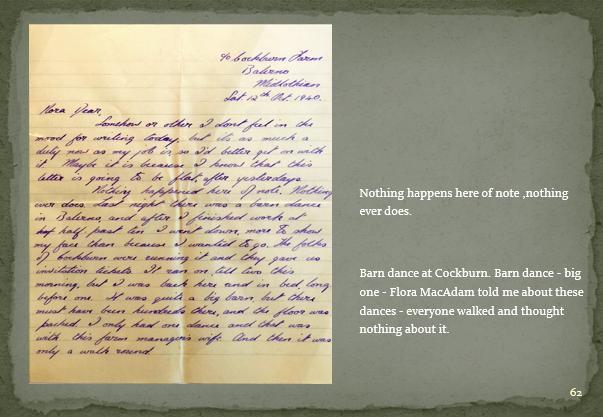 ℅ Cockburn Farm
Balerno
Midlothian
Sat. 12th Oct. 1940.
Nora Dear,
Somehow or other I dont feel in the
mood for writing today, but its as much a
duty now as my job is, so I'd better get on with
it. Maybe it is because I know that this
letter is going to be flat, after yesterdays.
Nothing happens here of note, Nothing
ever does. Last night there was a barn dance
in Balerno, and after I finished work at
half past ten I went down, more to show
my face than because I wanted to go. The folks
of Cockburn were running it and they gave us
invitation tickets. It ran on till two this
morning, but I was back here and in bed long
before one. It was quite a big barn but there
must have been hundreds there, and the floor was
packed. I only had one dance and that was
with this farm managers wife. And then it was
only a walk round.
Nothing happens here of note ,nothing
ever does.
Barn dance at Cockburn. Barn dance - big
one - Flora MacAdam told me about these
dances - everyone walked and thought
nothing about it.
62